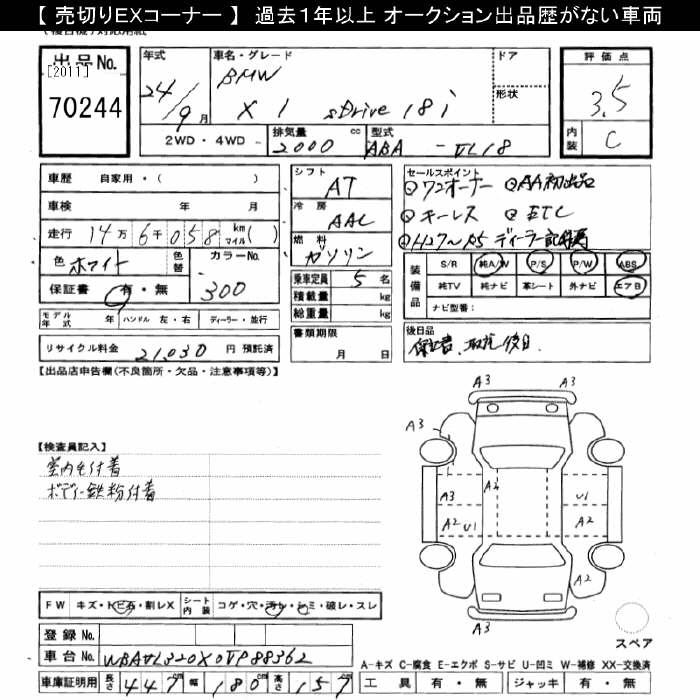 【 売切りEXコーナー 】 過去1年以上 オークション出品歴がない車両
出品 No.
[2011]
70244
年式
24/9月
車名・グレード
BMW
X1 sDrive 18i
ドア
形状
評価点
3.5
内装 C
2WD・4WD
排気量 2000 cc
型式 ABA-VL18
車歴 自家用・( )
車検 年 月
走行 14万6千058 km マイル( )
色 ホワイト
色替
カラーNo. 300
保証書 有・無
モデル年式 年 ハンドル 左・右 ディーラー・並行
リサイクル料金 21,030 円 預託済
シフト AT
冷房 AAC
燃料 ガソリン
乗車定員 5 名
積載量 kg
総重量 kg
書類期限
月 日
セールスポイント
ワンオーナー AA初出品
キーレス ETC
H27~R5 ディーラー記録簿
装備品
S/R 純A/W P/S P/W ABS
純TV 純ナビ 革シート 外ナビ エアB
ナビ型番:
後日品
保証書、取説 後日
【出品店申告欄(不良箇所・欠品・注意事項等)】
【検査員記入】
室内毛付着
ボディー鉄粉付着
A3 A3
A3
A3 A2 U1
A2 U1 A2
A2
A3
スペア
FW キズ・トビ石・割レX シート内装 コゲ・穴・汚レ・シミ・破レ・スレ
登録 No.
車台 No. WBAVL320X0VP88362
車庫証明用 長さ 447cm 幅 180cm 高さ 157
A-キズ C-腐食 E-エクボ S-サビ U-凹ミ W-補修 XX-交換済
工具 有・無 ジャッキ 有・無